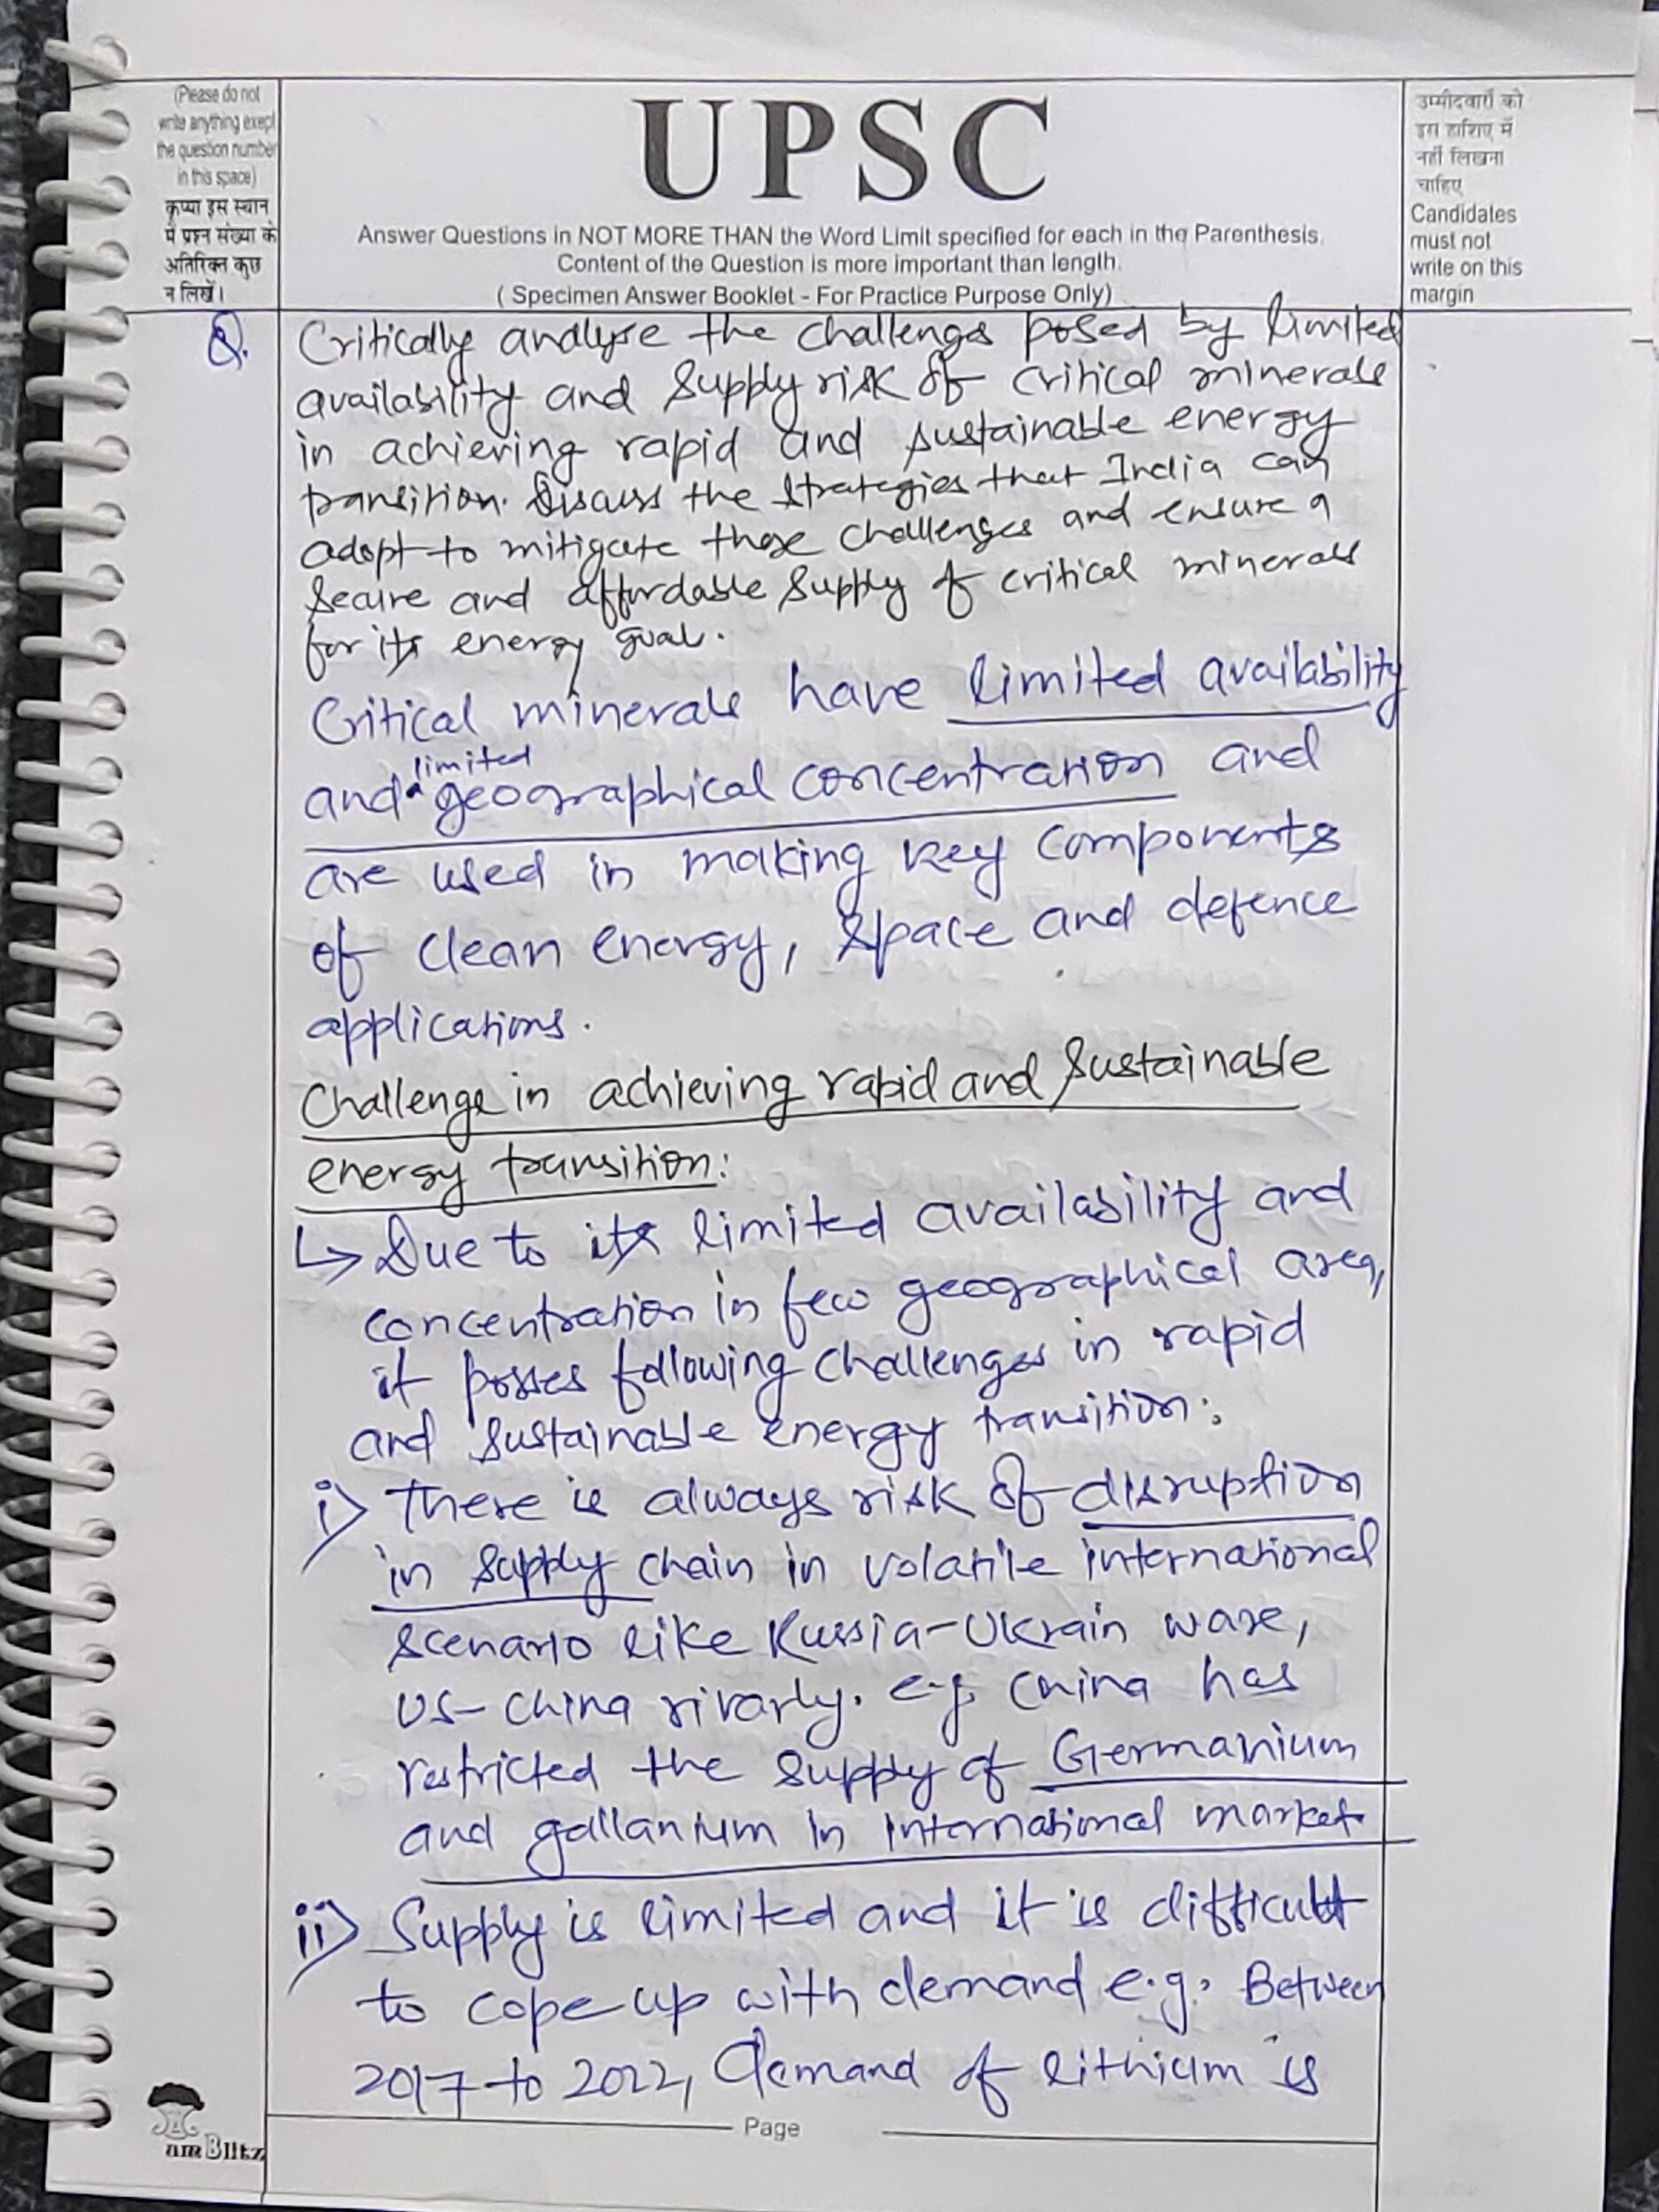 (Please do not
write anything exept
the question number
in this space)
कृप्या इस स्थान
में प्रश्न संख्या के
अतिरिक्त कुछ
न लिखें।
UPSC
Answer Questions in NOT MORE THAN the Word Limit specified for each in the Parenthesis.
Content of the Question is more important than length.
( Specimen Answer Booklet - For Practice Purpose Only)
उम्मीदवारों को
इस हाशिए में
नहीं लिखना
चाहिए
Candidates
must not
write on this
margin
Q. Critically analyse the challenges posed by limited
availability and supply risk of critical minerals
in achieving rapid and sustainable energy
transition. Discuss the strategies that India can
adopt to mitigate these challenges and ensure a
secure and affordable supply of critical minerals
for its energy goal.
Critical minerals have limited availability
and limited geographical concentration and
are used in making key components
of clean energy, space and defence
applications.
Challenge in achieving rapid and sustainable
energy transition:
↳ Due to its limited availability and
concentration in few geographical area,
it posses following challenges in rapid
and sustainable energy transition:
i) There is always risk of disruption
in supply chain in volatile international
scenario like Russia-Ukrain ware,
US-China rivarly. e.g. China has
restricted the supply of Germanium
and gallanium in international market.
ii) Supply is limited and it is difficult
to cope up with demand e.g. Between
2017 to 2022, demand of lithium is
Page
am Blitz